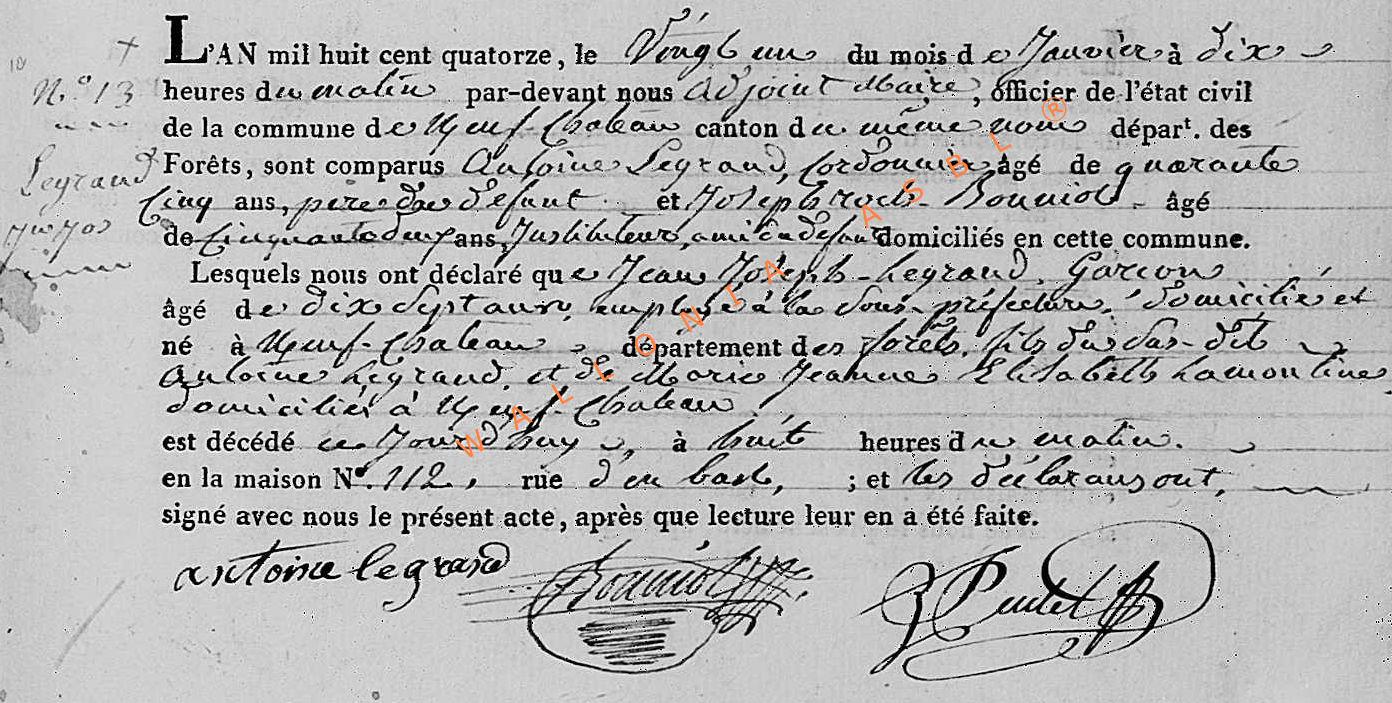 L'AN mil huit cent quatorze, le Vingt un du mois de Janvier à dix
N.º 13 heures du matin par-devant nous adjoint Maire, officier de l'état civil
de la commune de Neuf-Chateau canton du même nom dépar.t des
Legrand Forêts, sont comparus Antoine Legrand, Cordonnier âgé de quarante
Cinq ans, pere du défunt et Joseph roch Bonniol âgé
de Cinquante deux ans, Instituteur, ami du defunt domiciliés en cette commune.
Lesquels nous ont déclaré que Jean Joseph Legrand, Garcon
âgé de dix Sept ans, employé à la Sous-préfecture, domicilié et
né à Neuf-Chateau, département des forêts, fils du sus-dit
Antoine Legrand, et de Marie Jeanne Elisabeth Lamontine
domiciliés à Neuf-Chateau,
est décédé ce Jourd'huy, à huit heures du matin.
en la maison N.º 112, rue d'en bas, ; et les déclarans ont,
signé avec nous le présent acte, après que lecture leur en a été faite.
antoine legrand Bonniol
WALLONIA ASBL ®